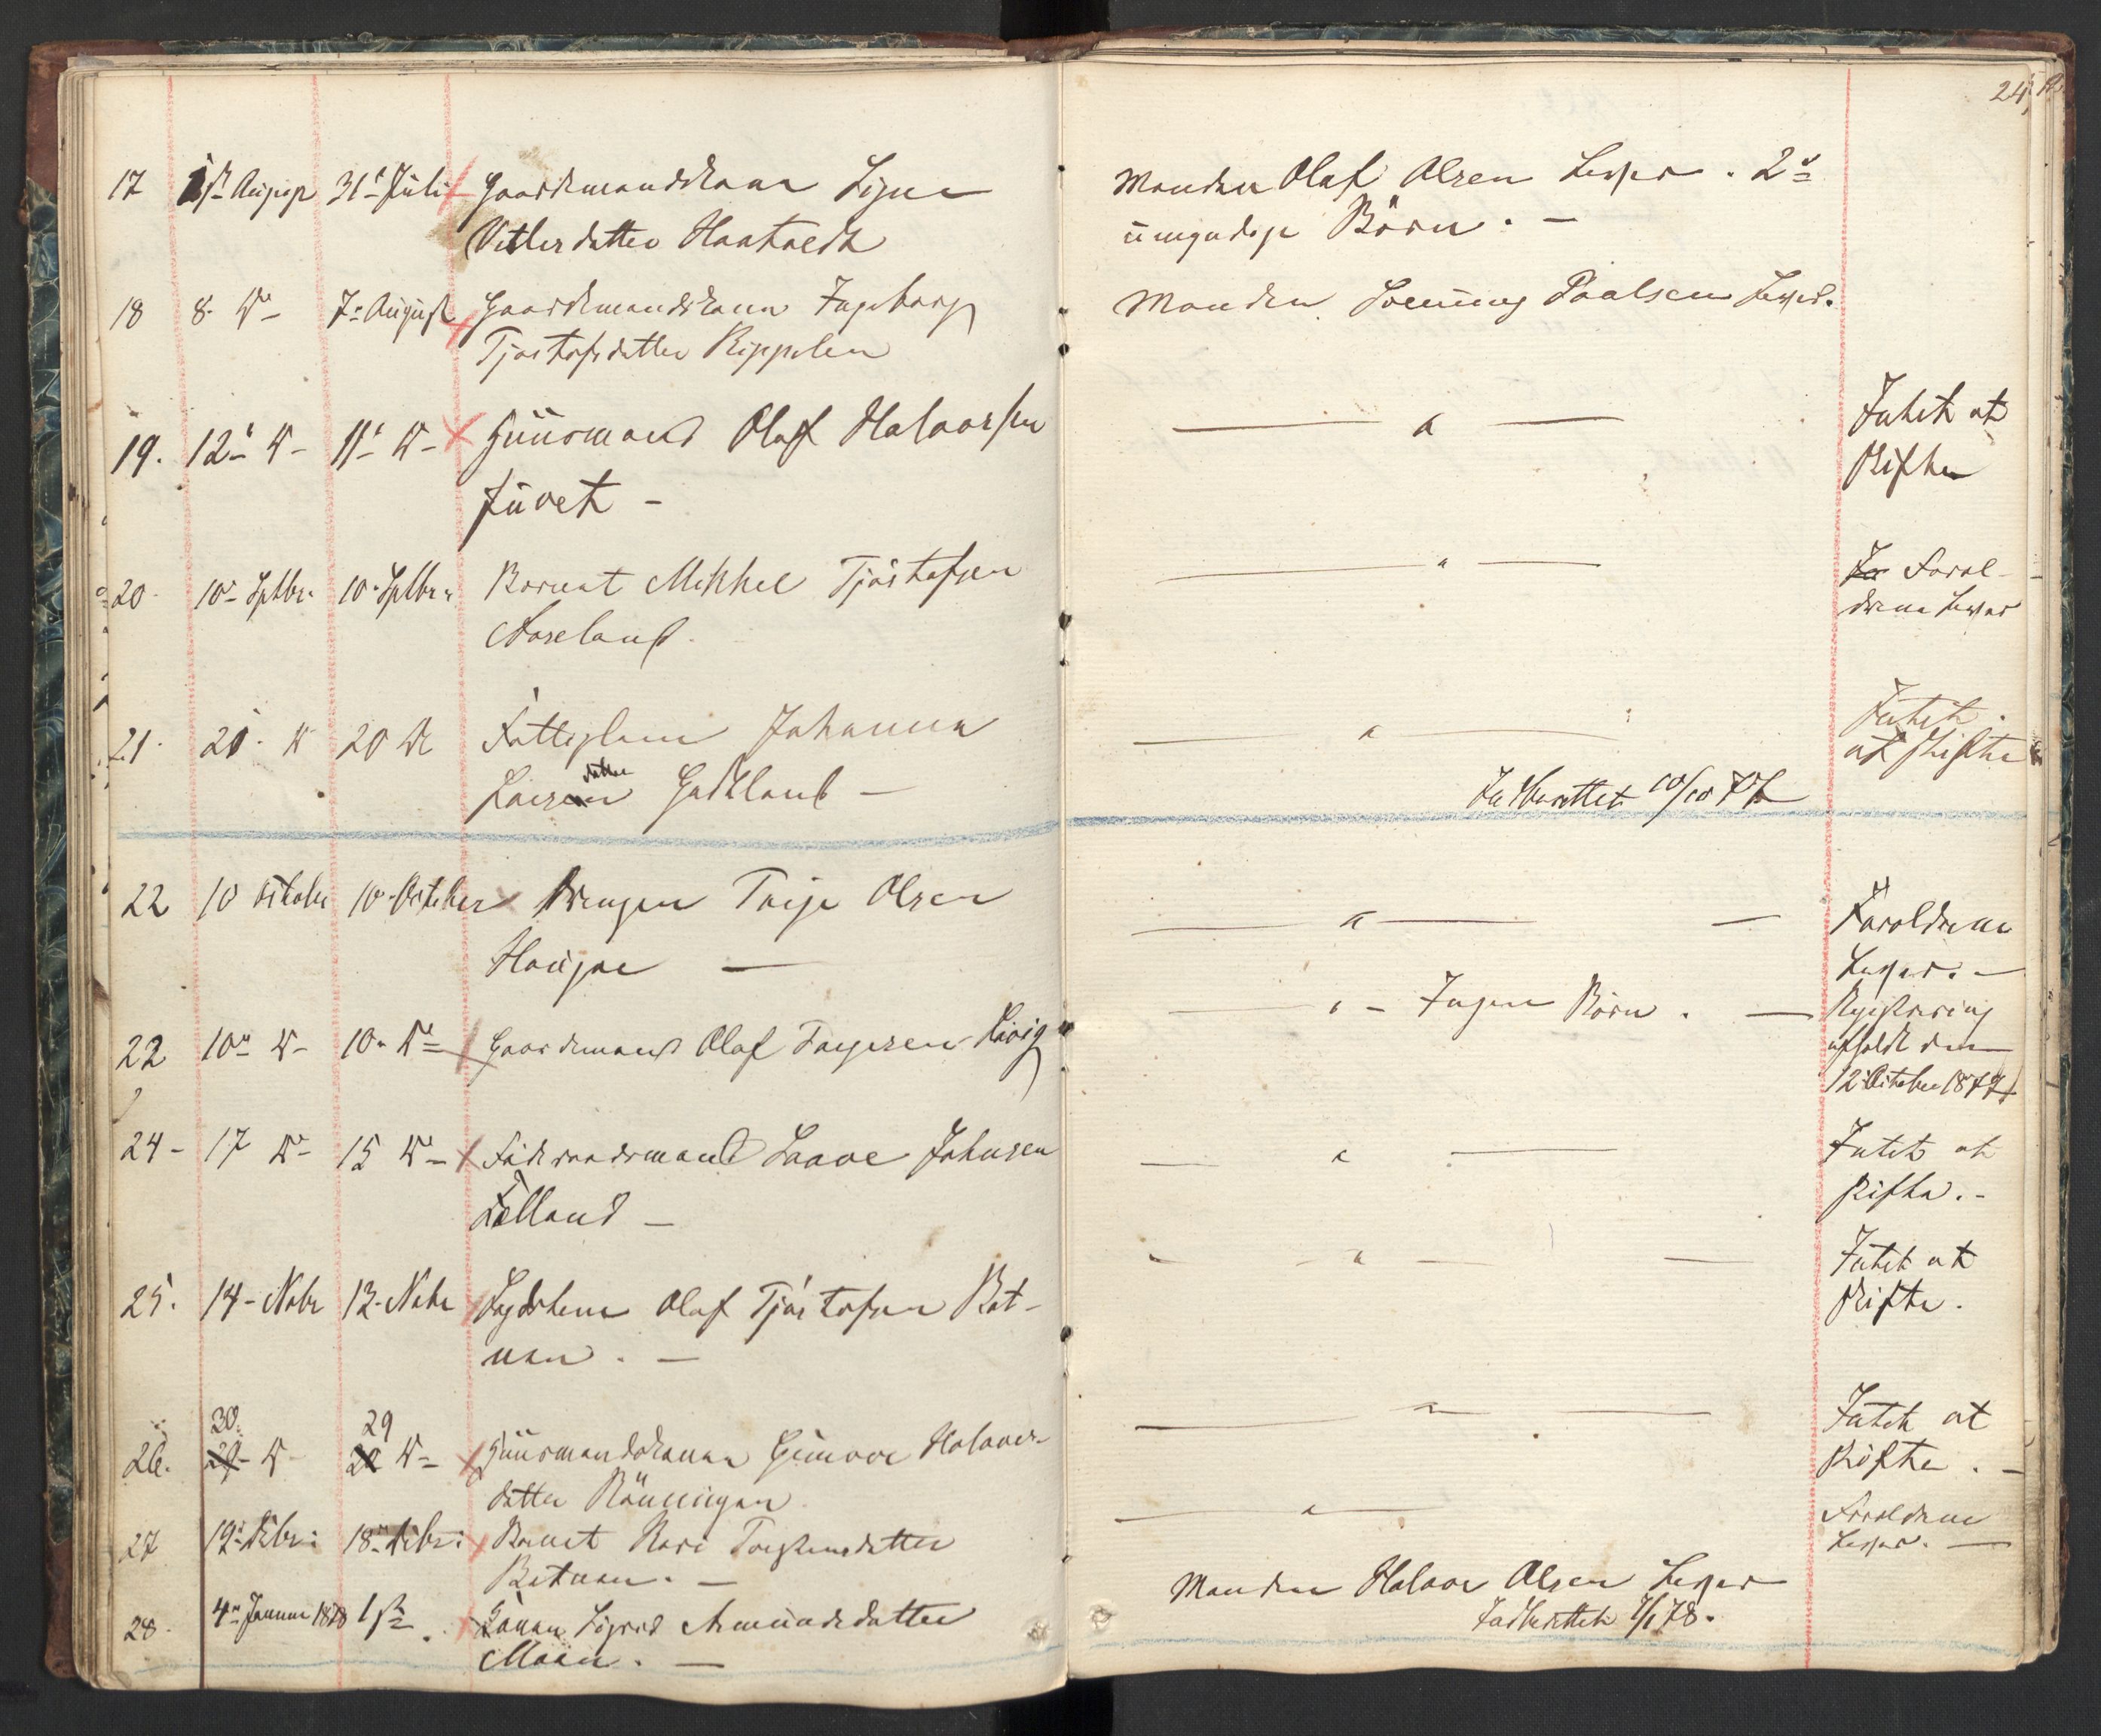 24
17 1ste August 31te Juli Gaardmandskone Signe
Vetlesdatter Haatvedt
Manden Olaf Olsen Lever. 2de
umyndige Börn. —
18 8. Do 7. August Gaardmandskone Ingeborg
Tjostofsdatter
Manden Paalsen Lever.
19. 12te Do 11te Do Huusmand Olaf Halvorsen
Juvet —
— " —
Intet at
skifte
20 10. Septbr. 10. Septbr. Barnet Mikkel Tjöstofsen
Aaseland.
— " —
Foræl-
drene Lever
21. 20. Do 20 Do Fattiglem Johanne
Larsdatter Gaskland —
— " —
Intet
at skifte
Indberettet 10/10 77
22 10 October 10. October Drengen Terje Olsen
Haugen —
— " — —
Forældrene
Lever. —
23 10. Do 10. Do Gaardmand Olaf Torgersen
— " — Ingen Börn. —
Registrering
afholdt den
12. October 1877
24 - 17 Do 15 Do Föderaadsmand Johnsen
Folland —
— " —
Intet at
skifte. -
25. 14 - Novbr 13 - Novbr Lægdslem Olaf Tjöstofsen Bot-
nen. —
- - " — —
Intet at
skifte.
26. 30. 29 Do 29 Do Huusmandskonen Gunvor Halvors-
datter Rönningen
— " —
Intet at
skifte. —
27 19. Decbr: 18. Decbr: Barnet Kari Torstensdatter
Botnen. —
— " —
Forældrene
Lever. —
28. 4. Januar 1878 1ste Konen Sigrid Amundsdatter
Moen. —
Manden Halvor Olsen Lever
Indberettet 4/1 78.